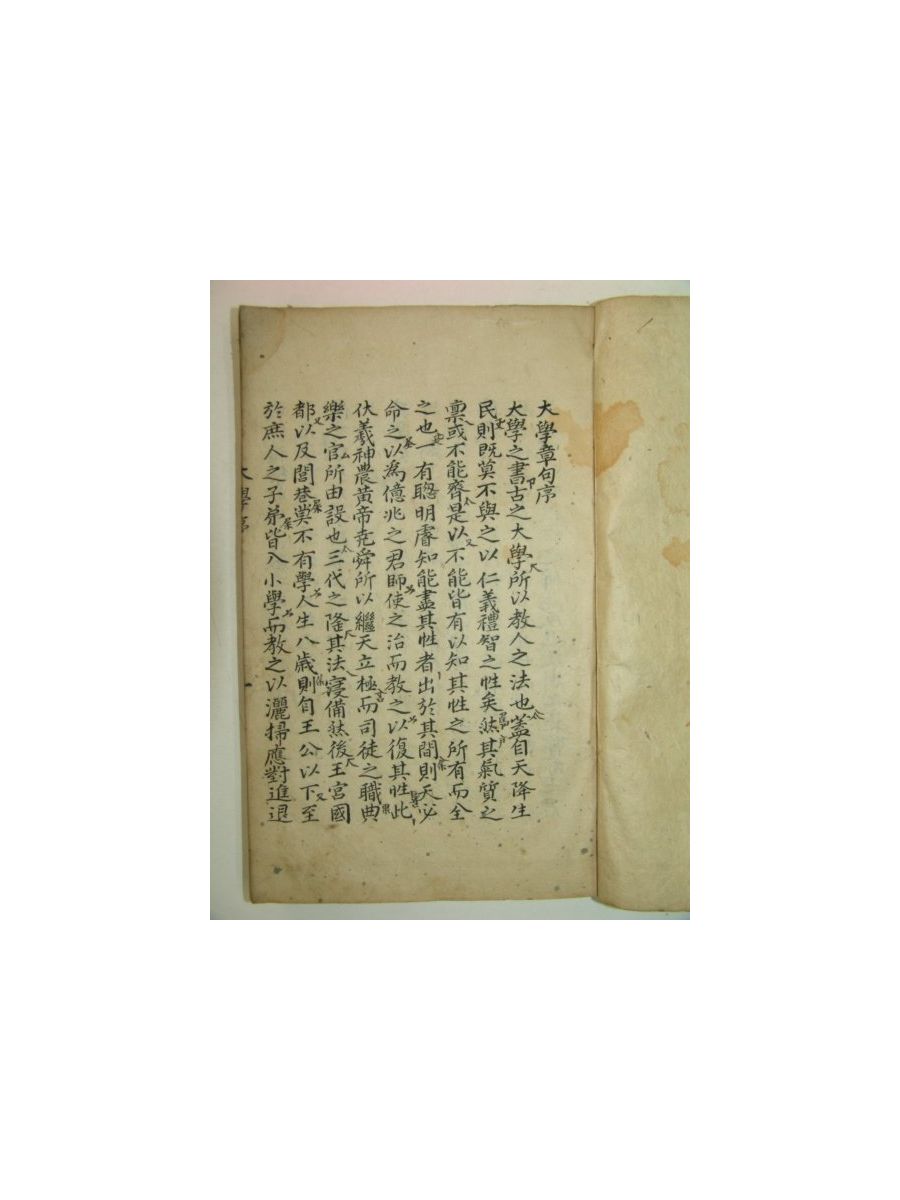 大學章句序
大學之書古之大學所以教人之法也蓋自天降生
民則既莫不與之以仁義禮智之性矣然其氣質之
禀或不能齊是以不能皆有以知其性之所有而全
之也一有聰明睿知能盡其性者出於其間則天必
命之以爲億兆之君師使之治而教之以復其性此
伏羲神農黃帝堯舜所以繼天立極而司徒之職典
樂之官所由設也三代之隆其法寖備然後王宮國
都以及閭巷莫不有學人生八歲則自王公以下至
於庶人之子弟皆入小學而教之以灑掃應對進退
大學序
一